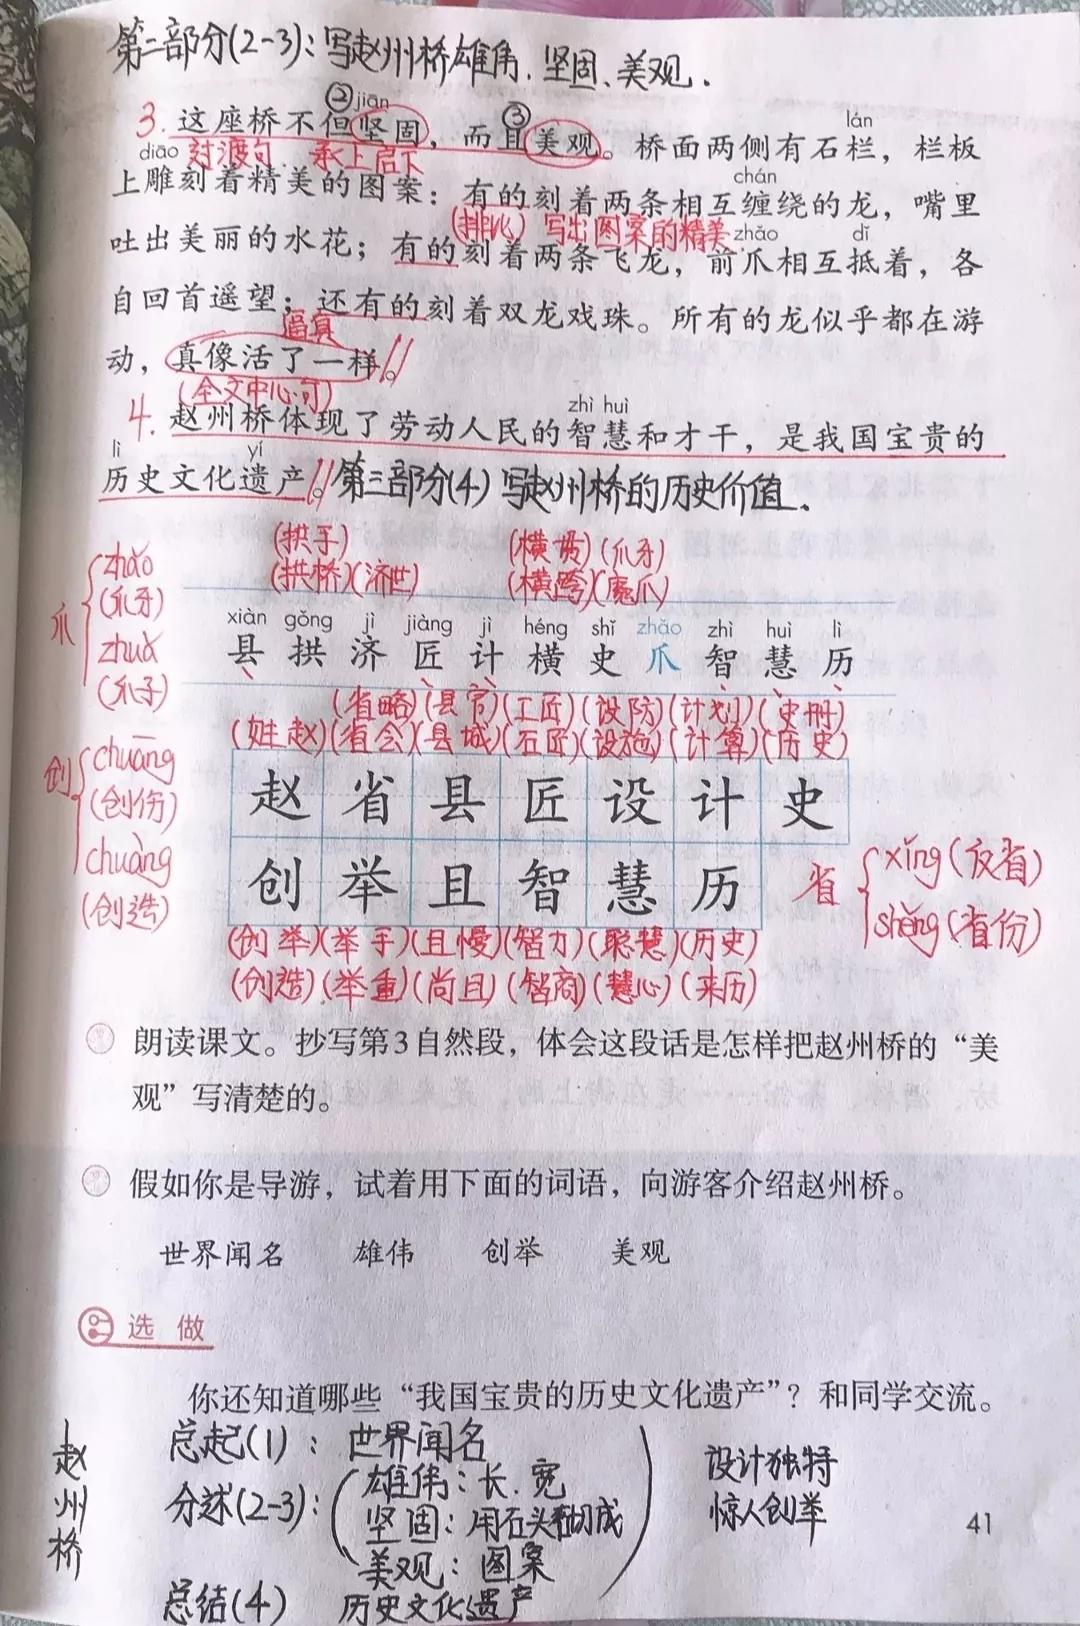 第二部分(2-3)：写赵州桥雄伟、坚固、美观.
② jiān ③ lán
3. 这座桥不但坚固，而且美观。桥面两侧有石栏，栏板
diāo 过渡句 承上启下 chán
上雕刻着精美的图案：有的刻着两条相互缠绕的龙，嘴里
(排比) 写出图案的精美 zhǎo dǐ
吐出美丽的水花；有的刻着两条飞龙，前爪相互抵着，各
自回首遥望；还有的刻着双龙戏珠。所有的龙似乎都在游
逼真
动，真像活了一样。
(全文中心句) zhì huì
4. 赵州桥体现了劳动人民的智慧和才干，是我国宝贵的
lì yí
历史文化遗产。第三部分(4) 写赵州桥的历史价值.
(拱手) (爪牙)
(拱桥)(济世) (横跨)(魔爪)
爪 zhǎo (爪牙) zhuǎ (爪子)
xiàn gǒng jì jiàng jì héng shǐ zhǎo zhì huì lì
县 拱 济 匠 计 横 史 爪 智 慧 历
(省略)(县官)(工匠)(设防)(计划)(史册)
(姓赵)(省会)(县城)(石匠)(设施)(计算)(历史)
创 chuāng (创伤) chuàng (创造)
赵 省 县 匠 设 计 史
创 举 且 智 慧 历
省 xǐng (反省) shěng (省份)
(创举)(举手)(且慢)(智力)(聪慧)(历史)
(创造)(举重)(尚且)(智商)(慧心)(来历)
朗读课文。抄写第3自然段，体会这段话是怎样把赵州桥的“美
观”写清楚的。
假如你是导游，试着用下面的词语，向游客介绍赵州桥。
世界闻名 雄伟 创举 美观
选做
你还知道哪些“我国宝贵的历史文化遗产”？和同学交流。
赵州桥
总起(1)：世界闻名
分述(2-3)：雄伟：长、宽
坚固：用石头砌成
美观：图案
总结(4) 历史文化遗产
设计独特
惊人创举
41